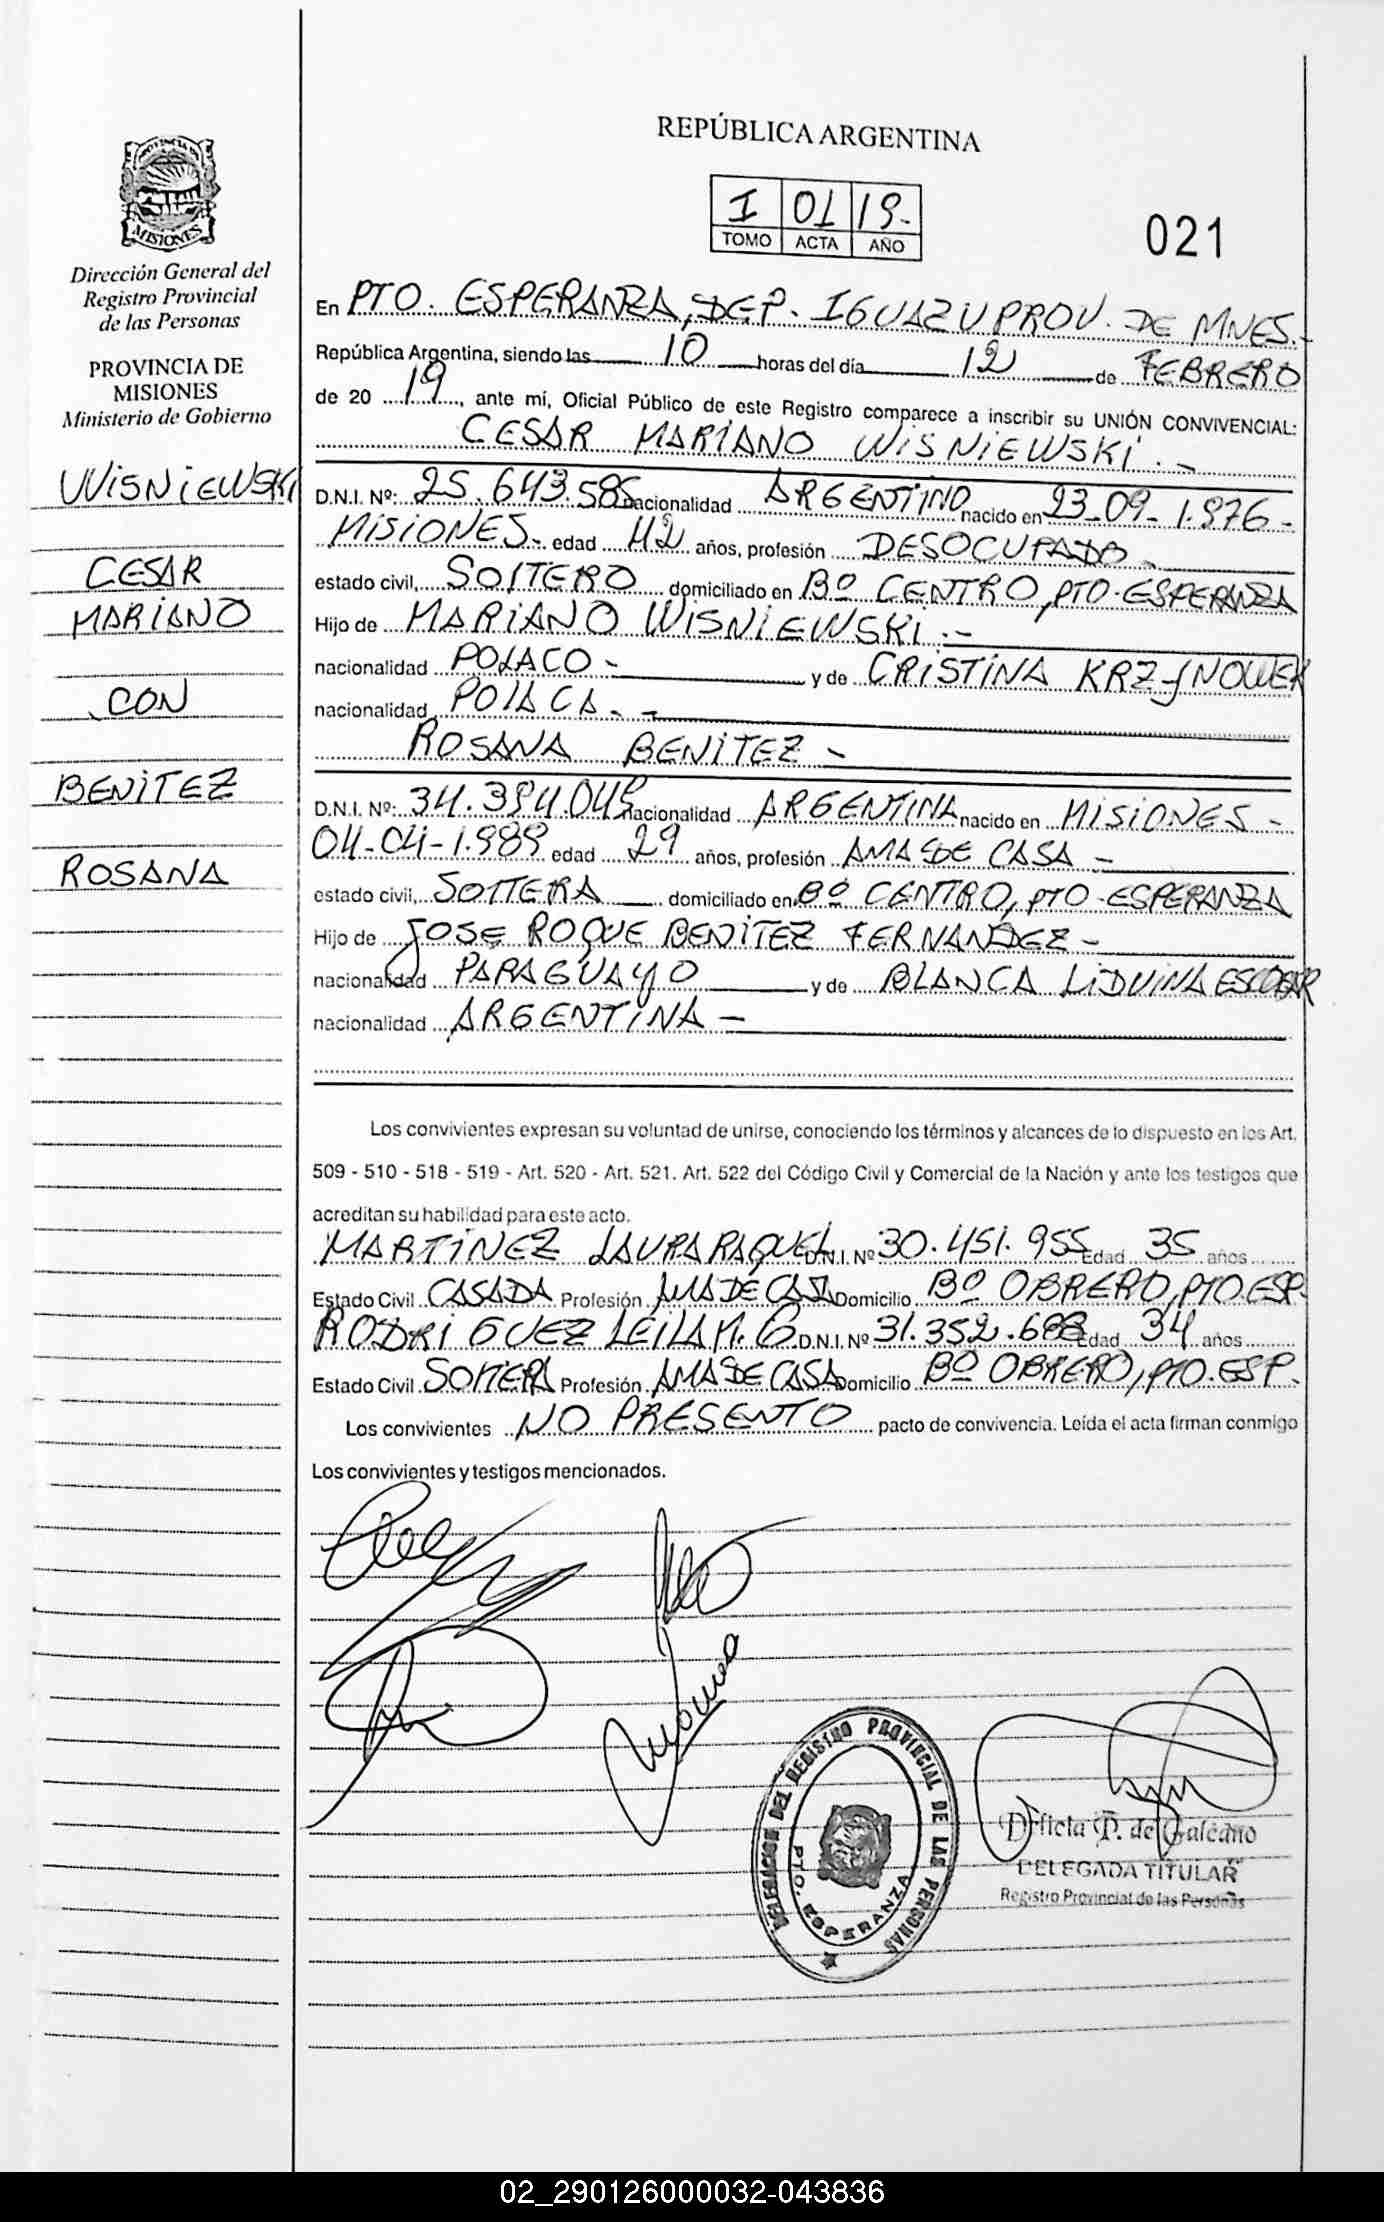 REPÚBLICA ARGENTINA
I 01 19.-
TOMO ACTA AÑO
021
MISIONES
Dirección General del
Registro Provincial
de las Personas
PROVINCIA DE
MISIONES
Ministerio de Gobierno
WISNIEWSKI
CESAR
MARIANO
CON
BENITEZ
ROSANA
En PTO. ESPERANZA, DEP. IGUAZU PROV. DE MNES.-
República Argentina, siendo las 10 horas del día 12 de FEBRERO
de 20 19, ante mi, Oficial Público de este Registro comparece a inscribir su UNIÓN CONVIVENCIAL:
CESAR MARIANO WISNIEWSKI.-
D.N.I. Nº: 25.643.585 nacionalidad ARGENTINO nacido en 23-09-1.976-
MISIONES- edad 42 años, profesión DESOCUPADO-
estado civil, SOLTERO domiciliado en Bº CENTRO, PTO. ESPERANZA
Hijo de MARIANO WISNIEWSKI.-
nacionalidad POLACO- y de CRISTINA KRZYNOWEK
nacionalidad POLACA.-
ROSANA BENITEZ-
D.N.I. Nº: 34.394.049 nacionalidad ARGENTINA nacido en MISIONES-
04-04-1.989 edad 29 años, profesión AMA DE CASA-
estado civil, SOLTERA domiciliado en Bº CENTRO, PTO. ESPERANZA
Hijo de JOSE ROQUE BENITEZ FERNANDEZ-
nacionalidad PARAGUAYO y de BLANCA LIDUINA ESCOBAR
nacionalidad ARGENTINA-
Los convivientes expresan su voluntad de unirse, conociendo los términos y alcances de lo dispuesto en los Art.
509 - 510 - 518 - 519 - Art. 520 - Art. 521. Art. 522 del Código Civil y Comercial de la Nación y ante los testigos que
acreditan su habilidad para este acto.
MARTINEZ LAURA RAQUEL D.N.I. Nº 30.451.955 Edad 35 años
Estado Civil CASADA Profesión AMA DE CASA Domicilio Bº OBRERO, PTO. ESP.
RODRIGUEZ LEILA M. G. D.N.I. Nº 31.352.688 Edad 34 años
Estado Civil SOLTERA Profesión AMA DE CASA Domicilio Bº OBRERO, PTO. ESP.
Los convivientes NO PRESENTO pacto de convivencia. Leída el acta firman conmigo
Los convivientes y testigos mencionados.
DELEGACION DEL REGISTRO PROVINCIAL DE LAS PERSONAS
PTO. ESPERANZA
P. de Galeano
DELEGADA TITULAR
Registro Provincial de las Personas
02_290126000032-043836